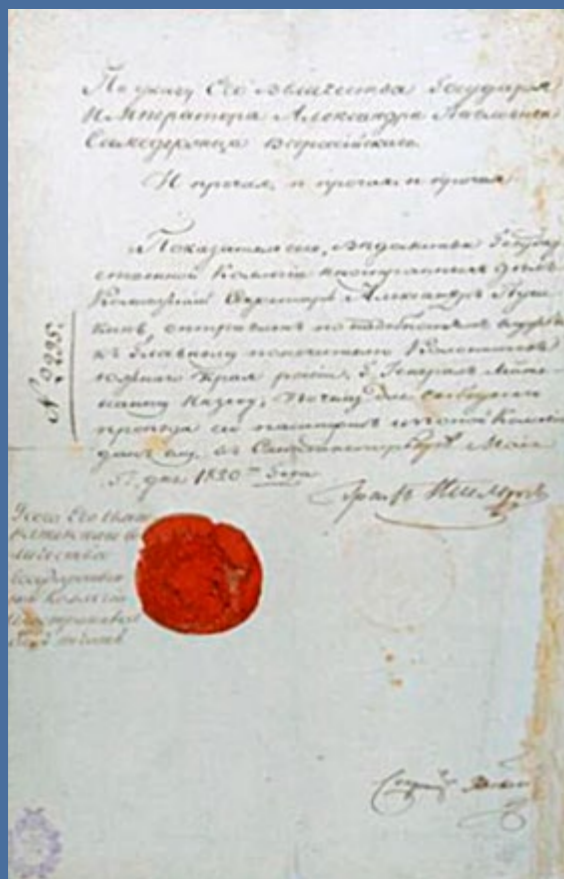 По указу Его Величества Государя
Императора Александра Павловича
Самодержца Всероссийскаго
И прочая, и прочая, и прочая
Показатель сего, Ведомства Государ
ственной Коллегии иностранных дел
Коллежский Секретарь Александр Пуш
кин, отправлен по надобностям службы
к Главному попечителю Колонистов
Южнаго Края России, Г. Генерал Лейте
нанту Инзову, почему для свободнаго
проезда сей пашпорт из оной Коллегии
дан ему в Санктпетербурге Маия
5 дня 1820 года
Граф Нессельрод
№ 2295.
У сего Его Импе
раторскаго Ве
личества
Государствен
ной Коллегии
Иностранных
дел печать
Секретарь